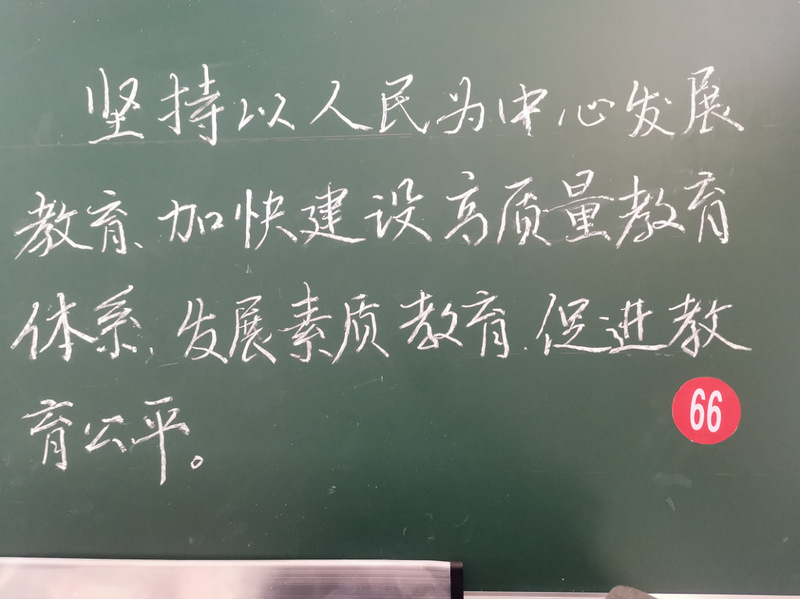 坚持以人民为中心发展
教育、加快建设高质量教育
体系,发展素质教育,促进教
育公平。
66